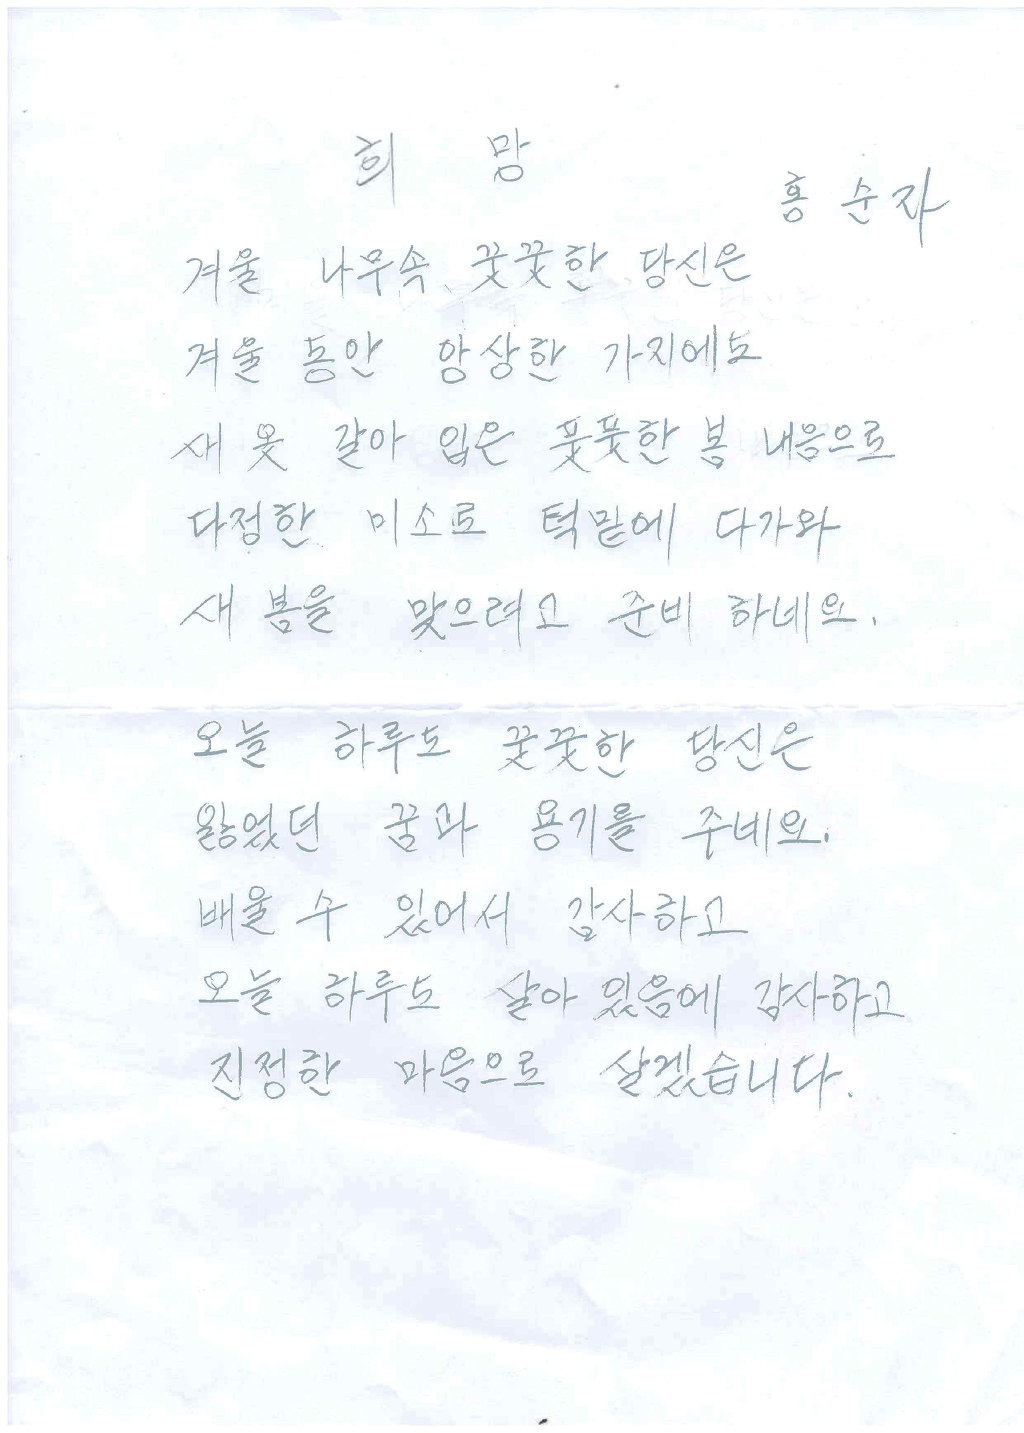 희 망
홍 순자
겨울 나무속 꿋꿋한 당신은
겨울 동안 앙상한 가지에도
새 옷 갈아 입은 풋풋한 봄 내음으로
다정한 미소로 턱밑에 다가와
새 봄을 맞으려고 준비 하네요.
오늘 하루도 꿋꿋한 당신은
잃었던 꿈과 용기를 주네요.
배울 수 있어서 감사하고
오늘 하루도 살아 있음에 감사하고
진정한 마음으로 살겠습니다.